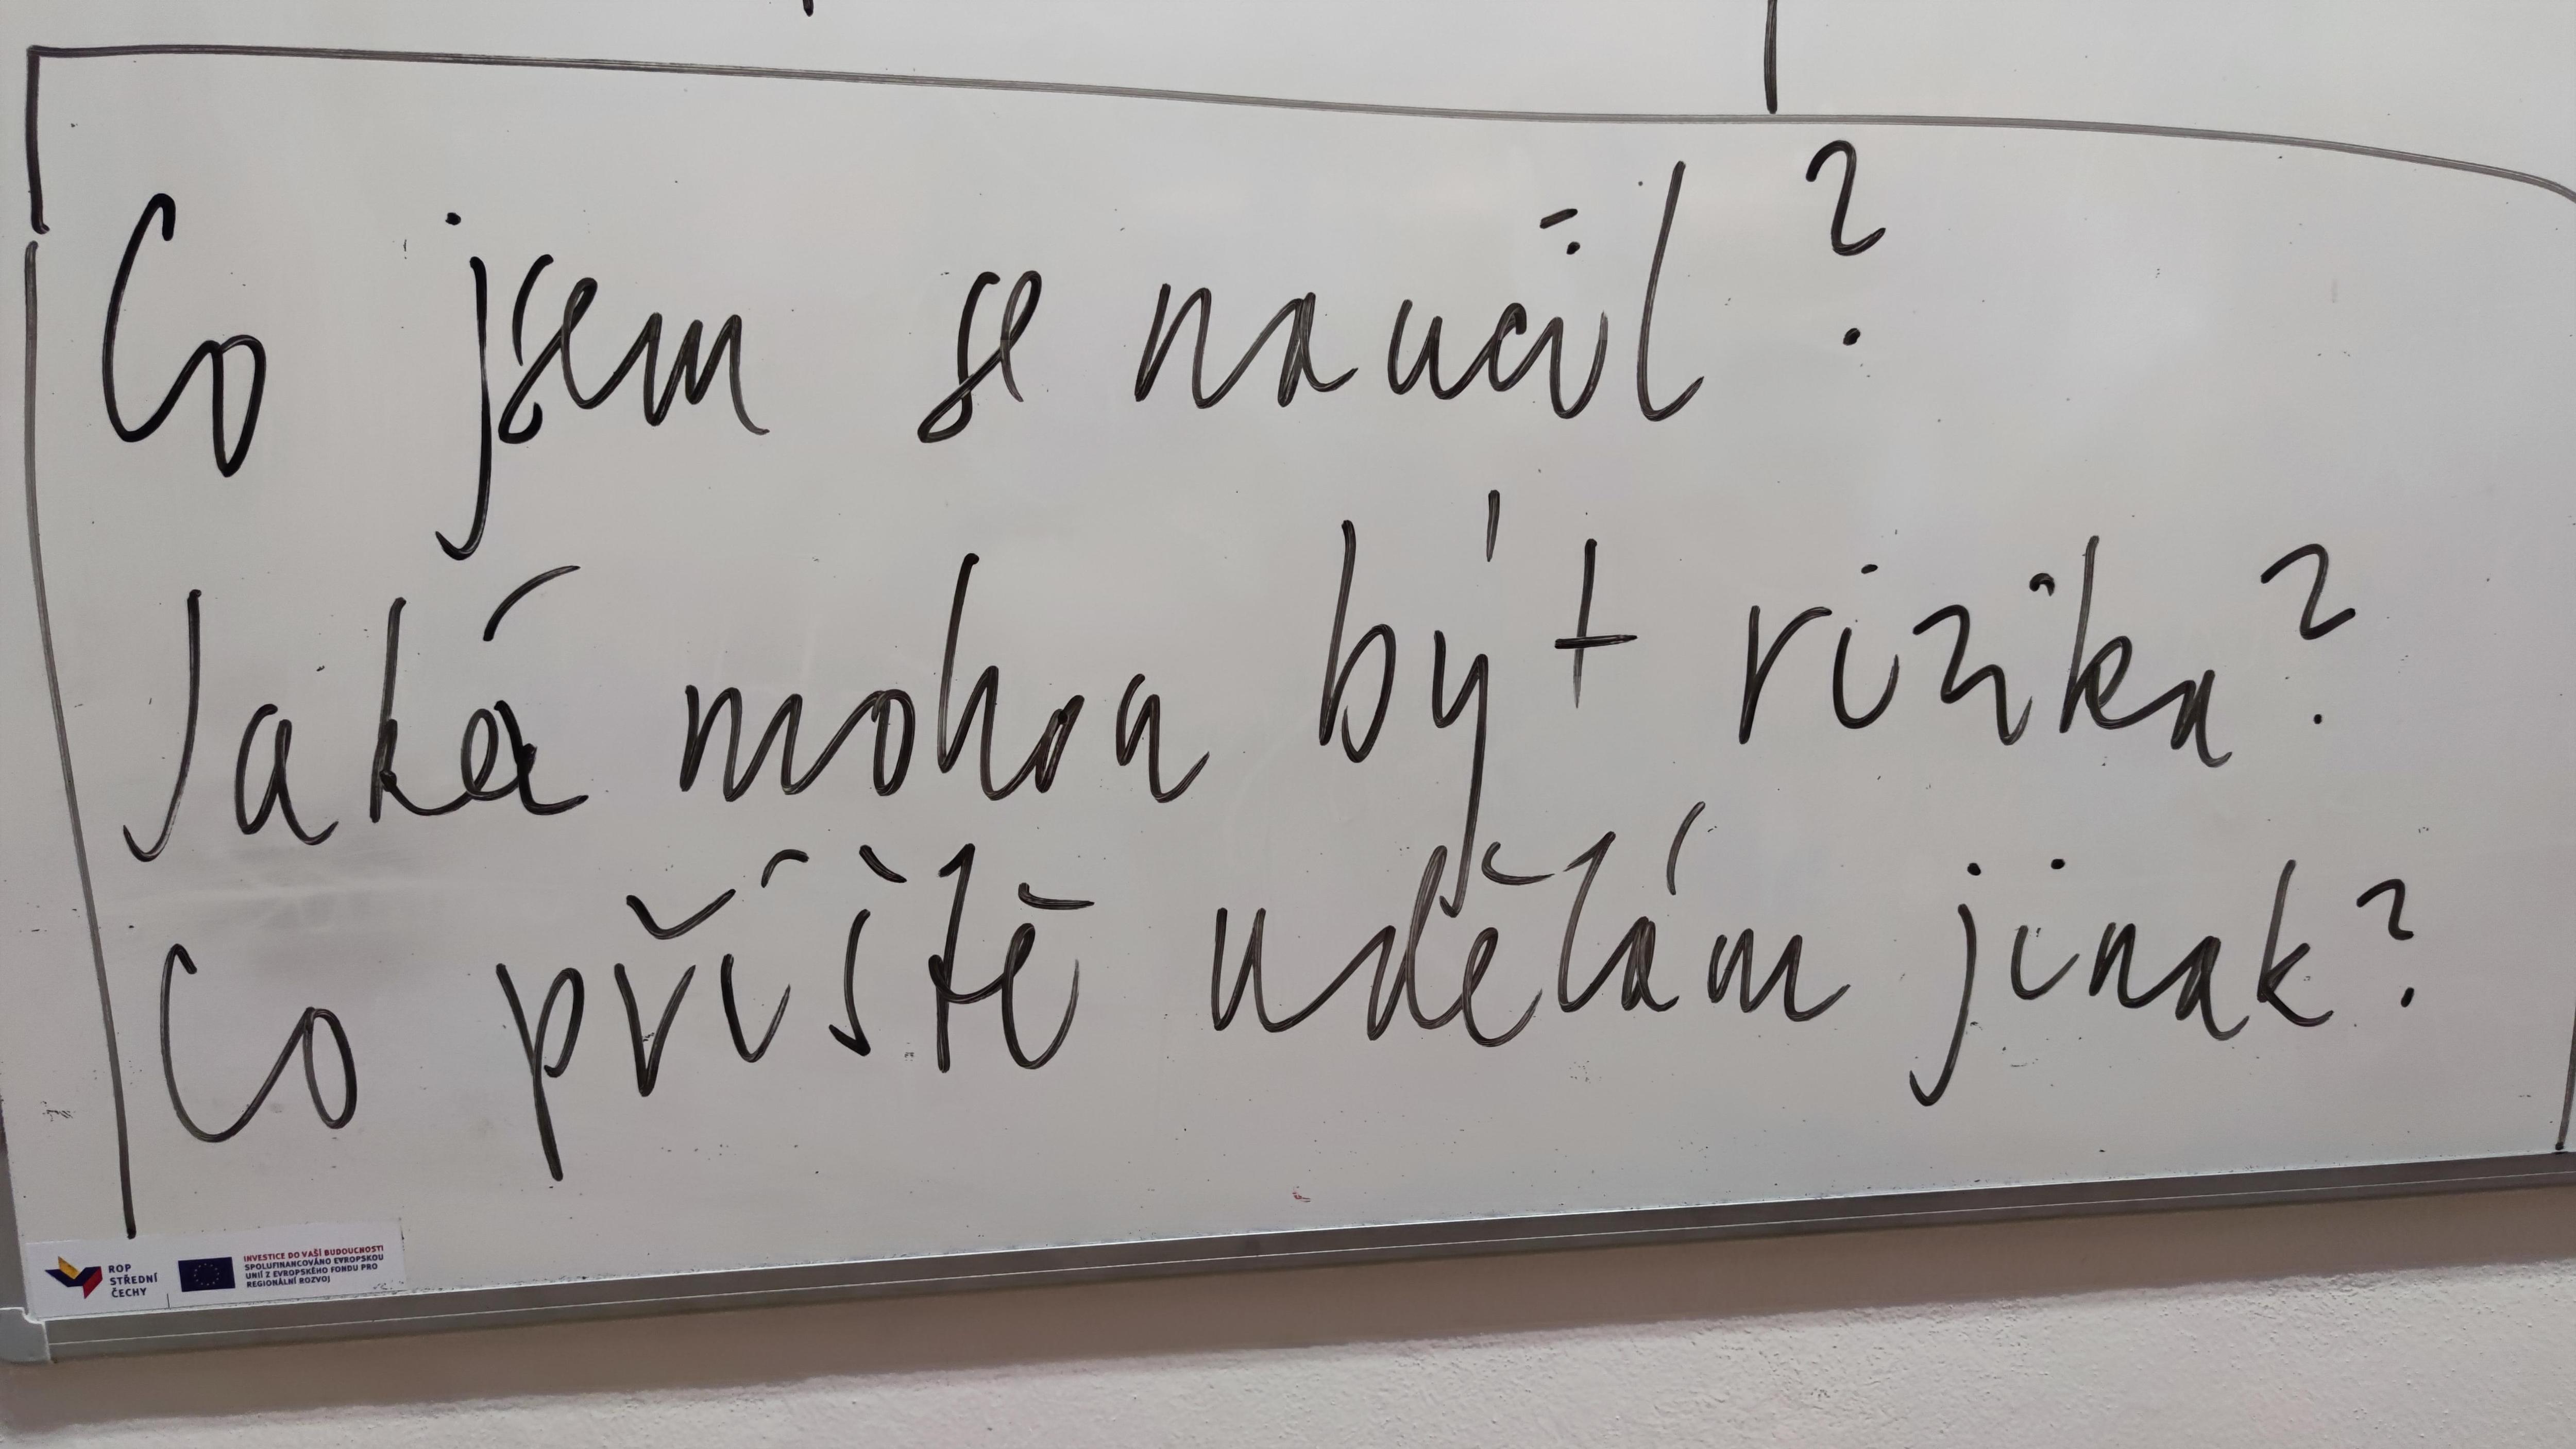 Co jsem se naučil?
Jaká mohou být rizika?
Co příště udělám jinak?
ROP
STŘEDNÍ
ČECHY
INVESTICE DO VAŠÍ BUDOUCNOSTI
SPOLUFINANCOVÁNO EVROPSKOU
UNIÍ Z EVROPSKÉHO FONDU PRO
REGIONÁLNÍ ROZVOJ